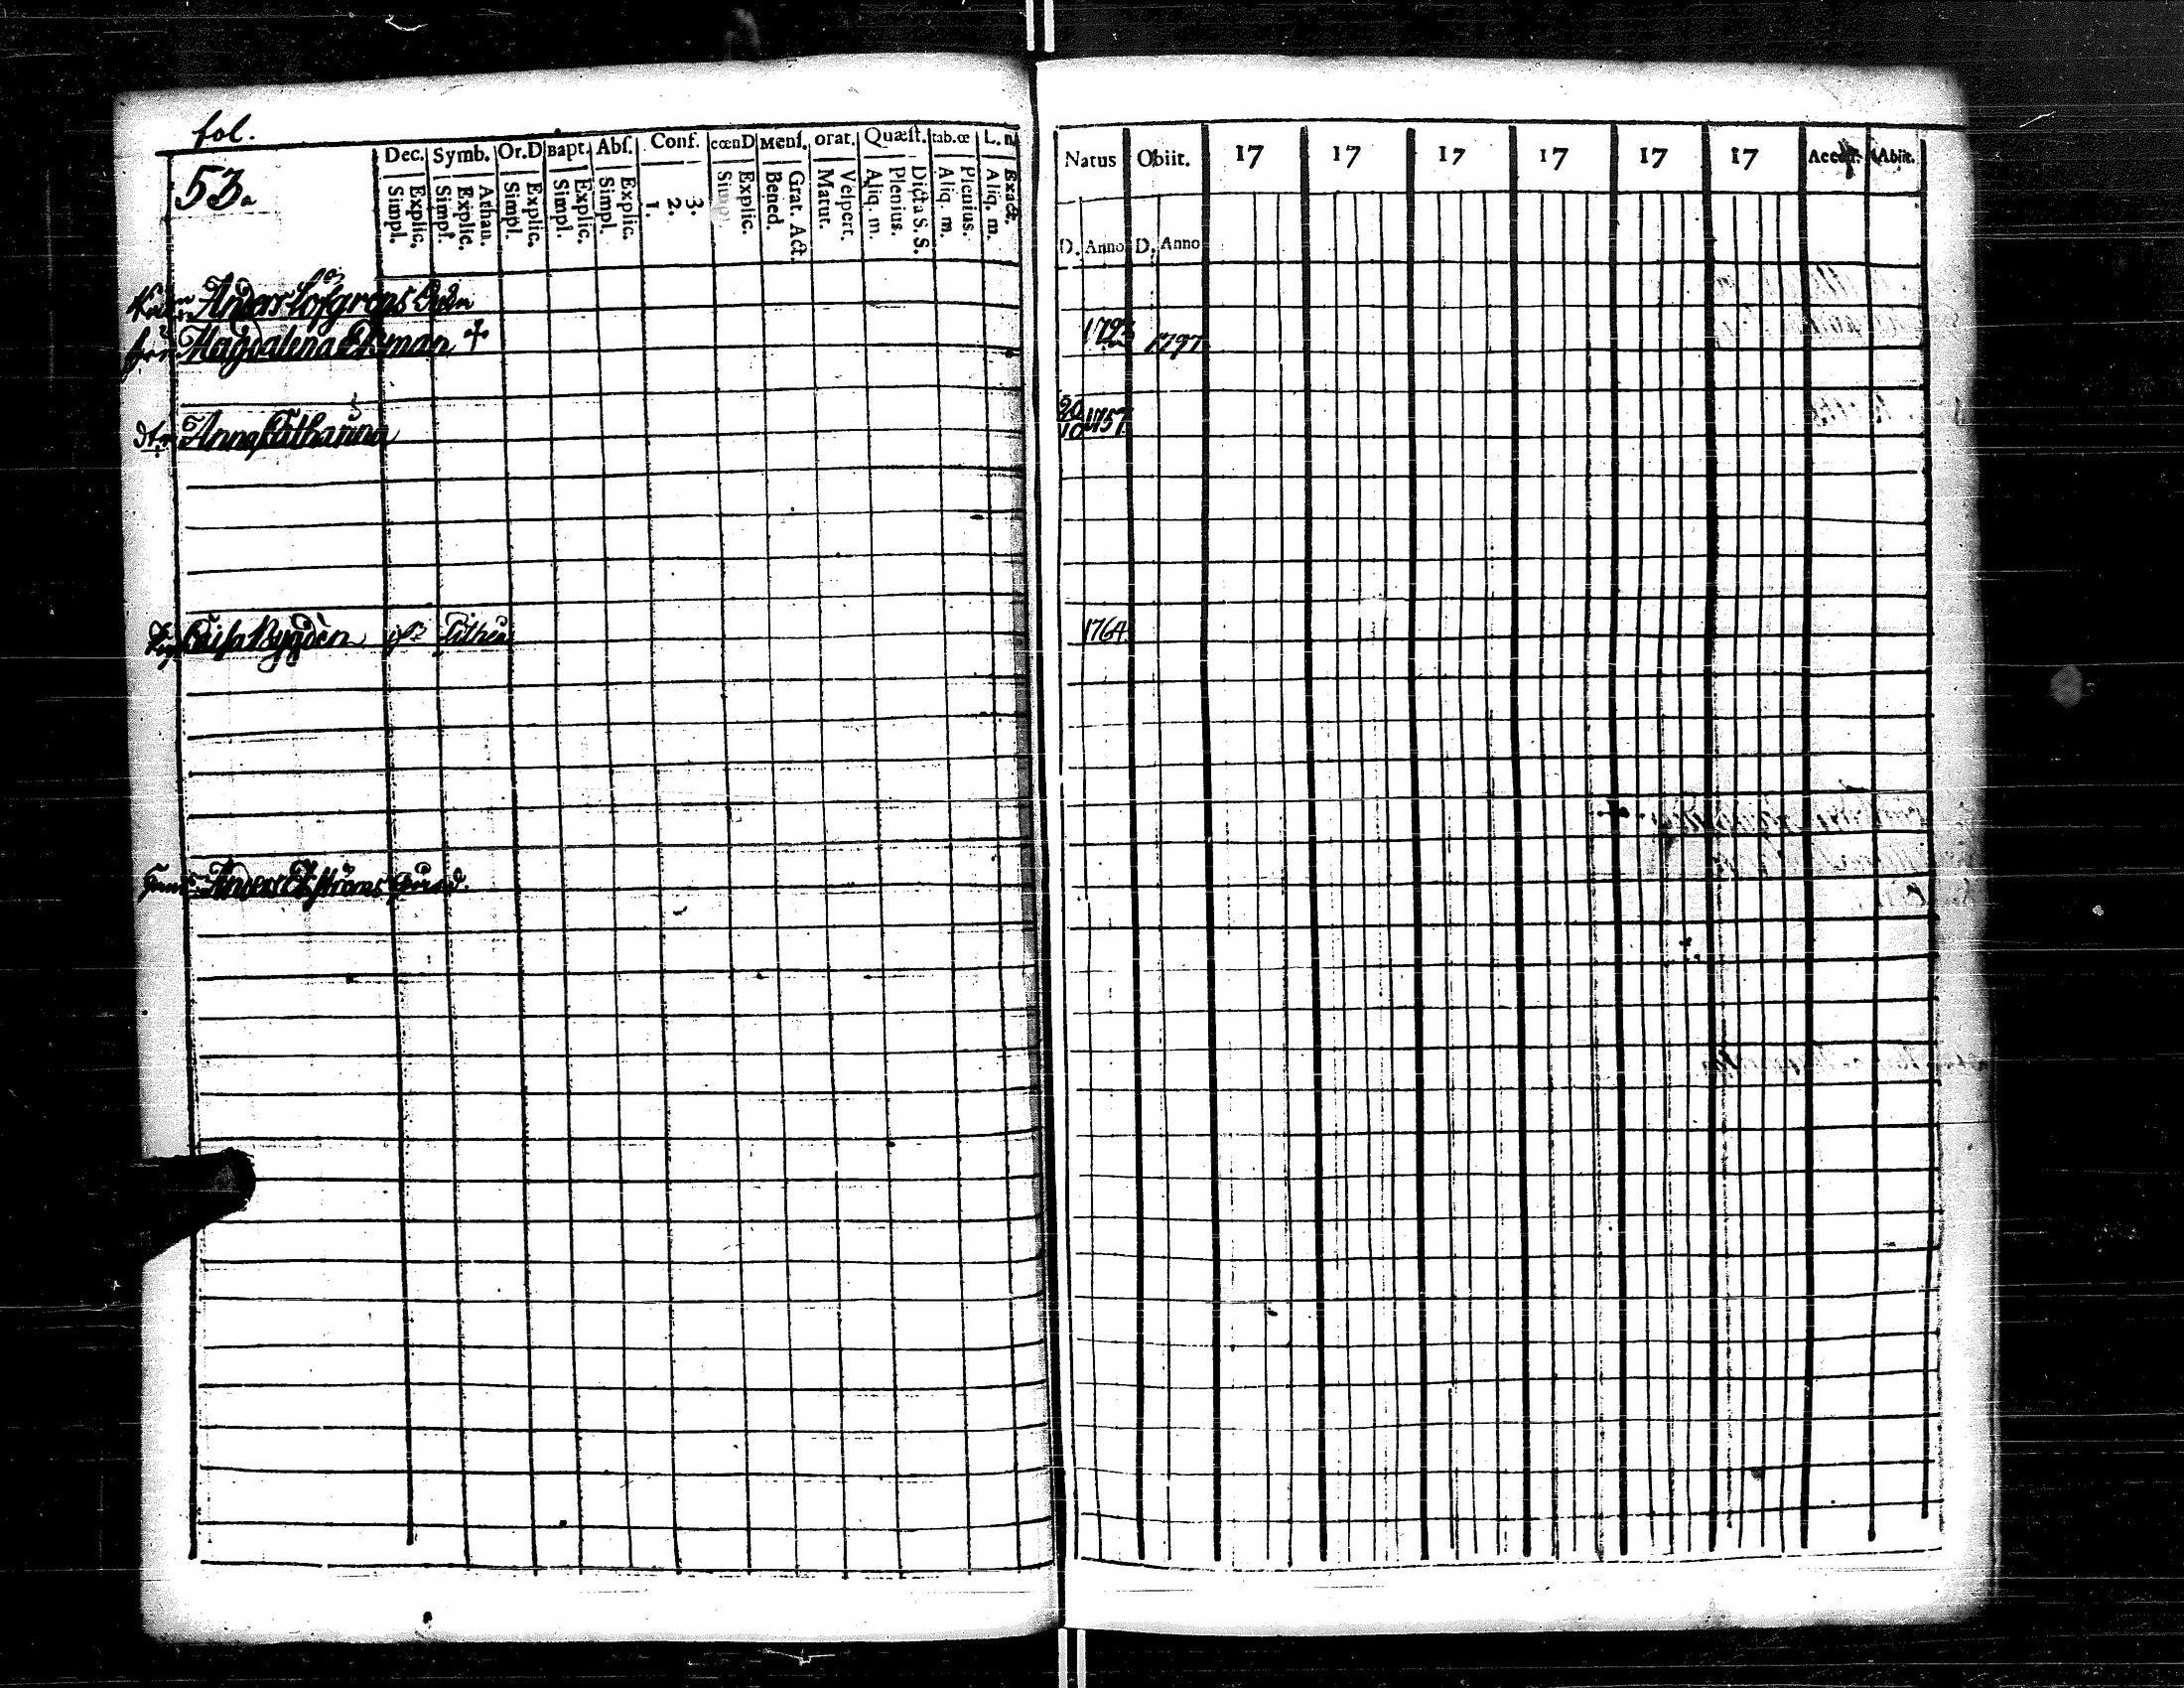 fol.
53.
Dec. Symb. Or.D Bapt. Abſ. Conf. cœnD Menſ. orat. Quæſt. tab.œ L. n
Simpl. Explic. Simpl. Explic. Athan. Simpl. Explic. Simpl. Explic. Simpl. Explic. 1. 2. 3. Simpl. Explic. Bened. Grat. Act. Matut. Veſpert. Aliq. m. Plenius. Dicta S. S. Aliq. m. Plenius. Aliq. m. Exact.
Natus Obiit. 17 17 17 17 17 17 Acceſſ. Abiit.
D. Anno D. Anno
Anders Löfgrens
Magdalena Ekman + 1723 1797
dtr Anna Catharina 20/10 1757
Caisa Rygdèn 1764
Anders